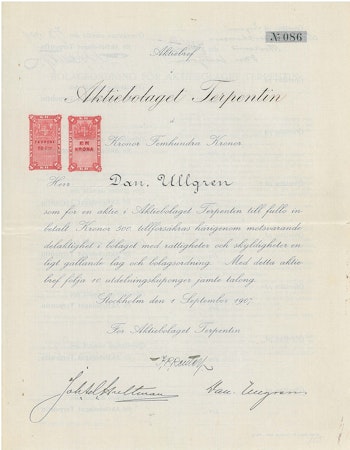 № 086
Aktiebref
i
Aktiebolaget Terpentin
å
Kronor Femhundra Kronor
EN
KRONA
Herr Dan. Ullgren
som för en aktie i Aktiebolaget Terpentin till fullo in
betalt Kronor 500 tillförsäkras härigenom motsvarande
delaktighet i bolaget med rättigheter och skyldigheter en
ligt gällande lag och bolagsordning. Med detta aktie
bref följa 10 utdelningskuponger jämte talong.
Stockholm den 1 September 1907.
För Aktiebolaget Terpentin
Dan. Ullgren